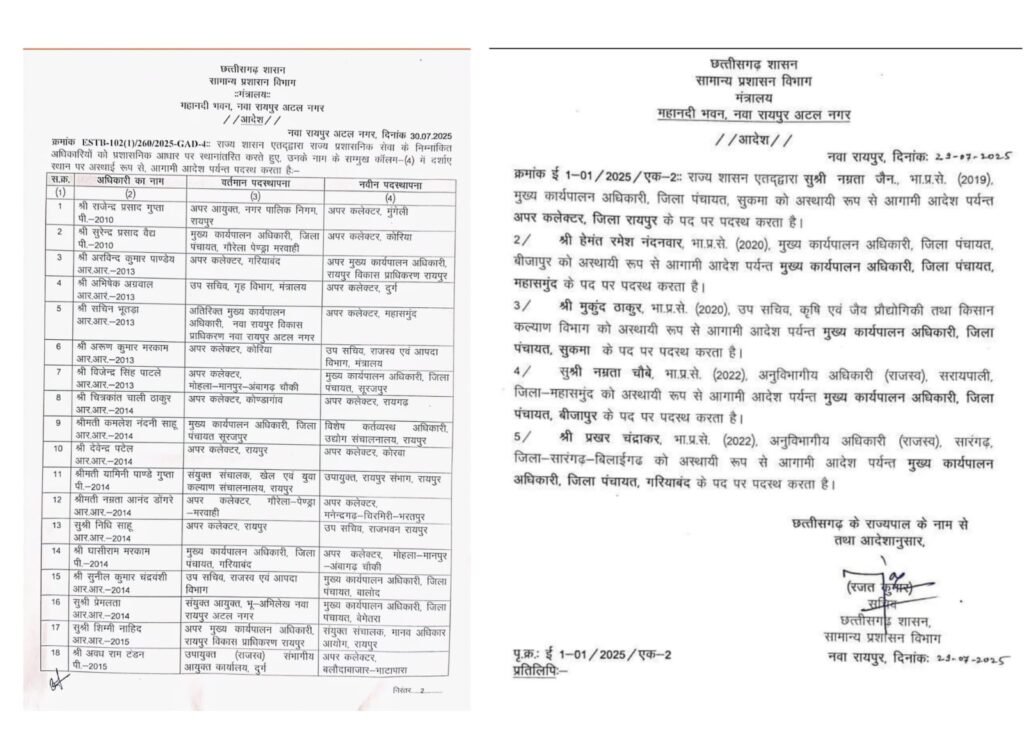 छत्तीसगढ़ शासन
सामान्य प्रशासन विभाग
::मंत्रालय::
महानदी भवन, नवा रायपुर अटल नगर
//आदेश//
नवा रायपुर अटल नगर, दिनांक 30.07.2025
क्रमांक ESTB-102(1)/260/2025-GAD-4:: राज्य शासन एतद्द्वारा राज्य प्रशासनिक सेवा के निम्नांकित
अधिकारियों को प्रशासनिक आधार पर स्थानांतरित करते हुए, उनके नाम के सम्मुख कॉलम–(4) में दर्शाए
स्थान पर अस्थाई रूप से, आगामी आदेश पर्यन्त पदस्थ करता है:–
स.क्र. अधिकारी का नाम वर्तमान पदस्थापना नवीन पदस्थापना
(1) (2) (3) (4)
1 श्री राजेन्द्र प्रसाद गुप्ता अपर आयुक्त, नगर पालिक निगम, अपर कलेक्टर, मुंगेली
पी.–2010 रायपुर
2 श्री सुरेन्द्र प्रसाद वैद्य मुख्य कार्यपालन अधिकारी, जिला अपर कलेक्टर, कोरिया
पी.–2010 पंचायत, गौरेला पेण्ड्रा मरवाही
3 श्री अरविन्द कुमार पाण्डेय अपर कलेक्टर, गरियाबंद अपर मुख्य कार्यपालन अधिकारी,
आर.आर.–2013 रायपुर विकास प्राधिकरण रायपुर
4 श्री अभिषेक अग्रवाल उप सचिव, गृह विभाग, मंत्रालय अपर कलेक्टर, दुर्ग
आर.आर.–2013
5 श्री सचिन भूतड़ा अतिरिक्त मुख्य कार्यपालन अपर कलेक्टर, महासमुंद
आर.आर.–2013 अधिकारी, नवा रायपुर विकास
प्राधिकरण नवा रायपुर अटल नगर
6 श्री अरूण कुमार मरकाम अपर कलेक्टर, कोरिया उप सचिव, राजस्व एवं आपदा
आर.आर.–2013 विभाग, मंत्रालय
7 श्री विजेन्द्र सिंह पाटले अपर कलेक्टर, मुख्य कार्यपालन अधिकारी, जिला
आर.आर.–2013 मोहला–मानपुर–अंबागढ़ चौकी पंचायत, सूरजपुर
8 श्री चित्रकांत चाली ठाकुर अपर कलेक्टर, कोण्डागांव अपर कलेक्टर, रायगढ़
आर.आर.–2014
9 श्रीमती कमलेश नंदनी साहू मुख्य कार्यपालन अधिकारी, जिला विशेष कर्तव्यस्थ अधिकारी,
आर.आर.–2014 पंचायत सूरजपुर उद्योग संचालनालय, रायपुर
10 श्री देवेन्द्र पटेल अपर कलेक्टर, रायपुर अपर कलेक्टर, कोरबा
आर.आर.–2014
11 श्रीमती यामिनी पाण्डे गुप्ता संयुक्त संचालक, खेल एवं युवा उपायुक्त, रायपुर संभाग, रायपुर
पी.–2014 कल्याण संचालनालय, रायपुर
12 श्रीमती नम्रता आनंद डोंगरे अपर कलेक्टर, गौरेला–पेण्ड्रा अपर कलेक्टर,
आर.आर.–2014 –मरवाही मनेन्दगढ़–चिरमिरी–भरतपुर
13 सुश्री निधि साहू अपर कलेक्टर, रायपुर उप सचिव, राजभवन रायपुर
आर.आर.–2014
14 श्री घासीराम मरकाम मुख्य कार्यपालन अधिकारी, जिला अपर कलेक्टर, मोहला–मानपुर
पी.–2014 पंचायत, गरियाबंद –अंबागढ़ चौकी
15 श्री सुनील कुमार चंद्रवंशी उप सचिव, राजस्व एवं आपदा मुख्य कार्यपालन अधिकारी, जिला
आर.आर.–2014 विभाग पंचायत, बालोद
16 सुश्री प्रेमलता संयुक्त आयुक्त, भू–अभिलेख नवा मुख्य कार्यपालन अधिकारी, जिला
आर.आर.–2014 रायपुर अटल नगर पंचायत, बेमेतरा
17 सुश्री शिम्मी नाहिद अपर मुख्य कार्यपालन अधिकारी, संयुक्त संचालक, मानव अधिकार
आर.आर.–2015 रायपुर विकास प्राधिकरण रायपुर आयोग, रायपुर
18 श्री अवध राम टंडन उपायुक्त (राजस्व) संभागीय अपर कलेक्टर,
पी.–2015 आयुक्त कार्यालय, दुर्ग बलौदाबाजार–भाटापारा
निरंतर...2
छत्तीसगढ़ शासन
सामान्य प्रशासन विभाग
मंत्रालय
महानदी भवन, नवा रायपुर अटल नगर
//आदेश//
नवा रायपुर, दिनांक: 29-07-2025
क्रमांक ई 1–01/2025/एक–2:: राज्य शासन एतद्द्वारा सुश्री नम्रता जैन., भा.प्र.से. (2019),
मुख्य कार्यपालन अधिकारी, जिला पंचायत, सुकमा को अस्थायी रूप से आगामी आदेश पर्यन्त
अपर कलेक्टर, जिला रायपुर के पद पर पदस्थ करता है।
2/ श्री हेमंत रमेश नंदनवार, भा.प्र.से. (2020), मुख्य कार्यपालन अधिकारी, जिला पंचायत,
बीजापुर को अस्थायी रूप से आगामी आदेश पर्यन्त मुख्य कार्यपालन अधिकारी, जिला पंचायत,
महासमुंद के पद पर पदस्थ करता है।
3/ श्री मुकुंद ठाकुर, भा.प्र.से. (2020), उप सचिव, कृषि एवं जैव प्रौद्योगिकी तथा किसान
कल्याण विभाग को अस्थायी रूप से आगामी आदेश पर्यन्त मुख्य कार्यपालन अधिकारी, जिला
पंचायत, सुकमा के पद पर पदस्थ करता है।
4/ सुश्री नम्रता चौबे, भा.प्र.से. (2022), अनुविभागीय अधिकारी (राजस्व), सरायपाली,
जिला–महासमुंद को अस्थायी रूप से आगामी आदेश पर्यन्त मुख्य कार्यपालन अधिकारी, जिला
पंचायत, बीजापुर के पद पर पदस्थ करता है।
5/ श्री प्रखर चंद्राकर, भा.प्र.से. (2022), अनुविभागीय अधिकारी (राजस्व), सारंगढ़,
जिला–सारंगढ़–बिलाईगढ को अस्थायी रूप से आगामी आदेश पर्यन्त मुख्य कार्यपालन
अधिकारी, जिला पंचायत, गरियाबंद के पद पर पदस्थ करता है।
छत्तीसगढ़ के राज्यपाल के नाम से
तथा आदेशानुसार,
(रजत कुमार)
सचिव
छत्तीसगढ़ शासन,
सामान्य प्रशासन विभाग
पृ.क्र.: ई 1–01/2025/एक–2 नवा रायपुर, दिनांक: 29-07-2025
प्रतिलिपि:–